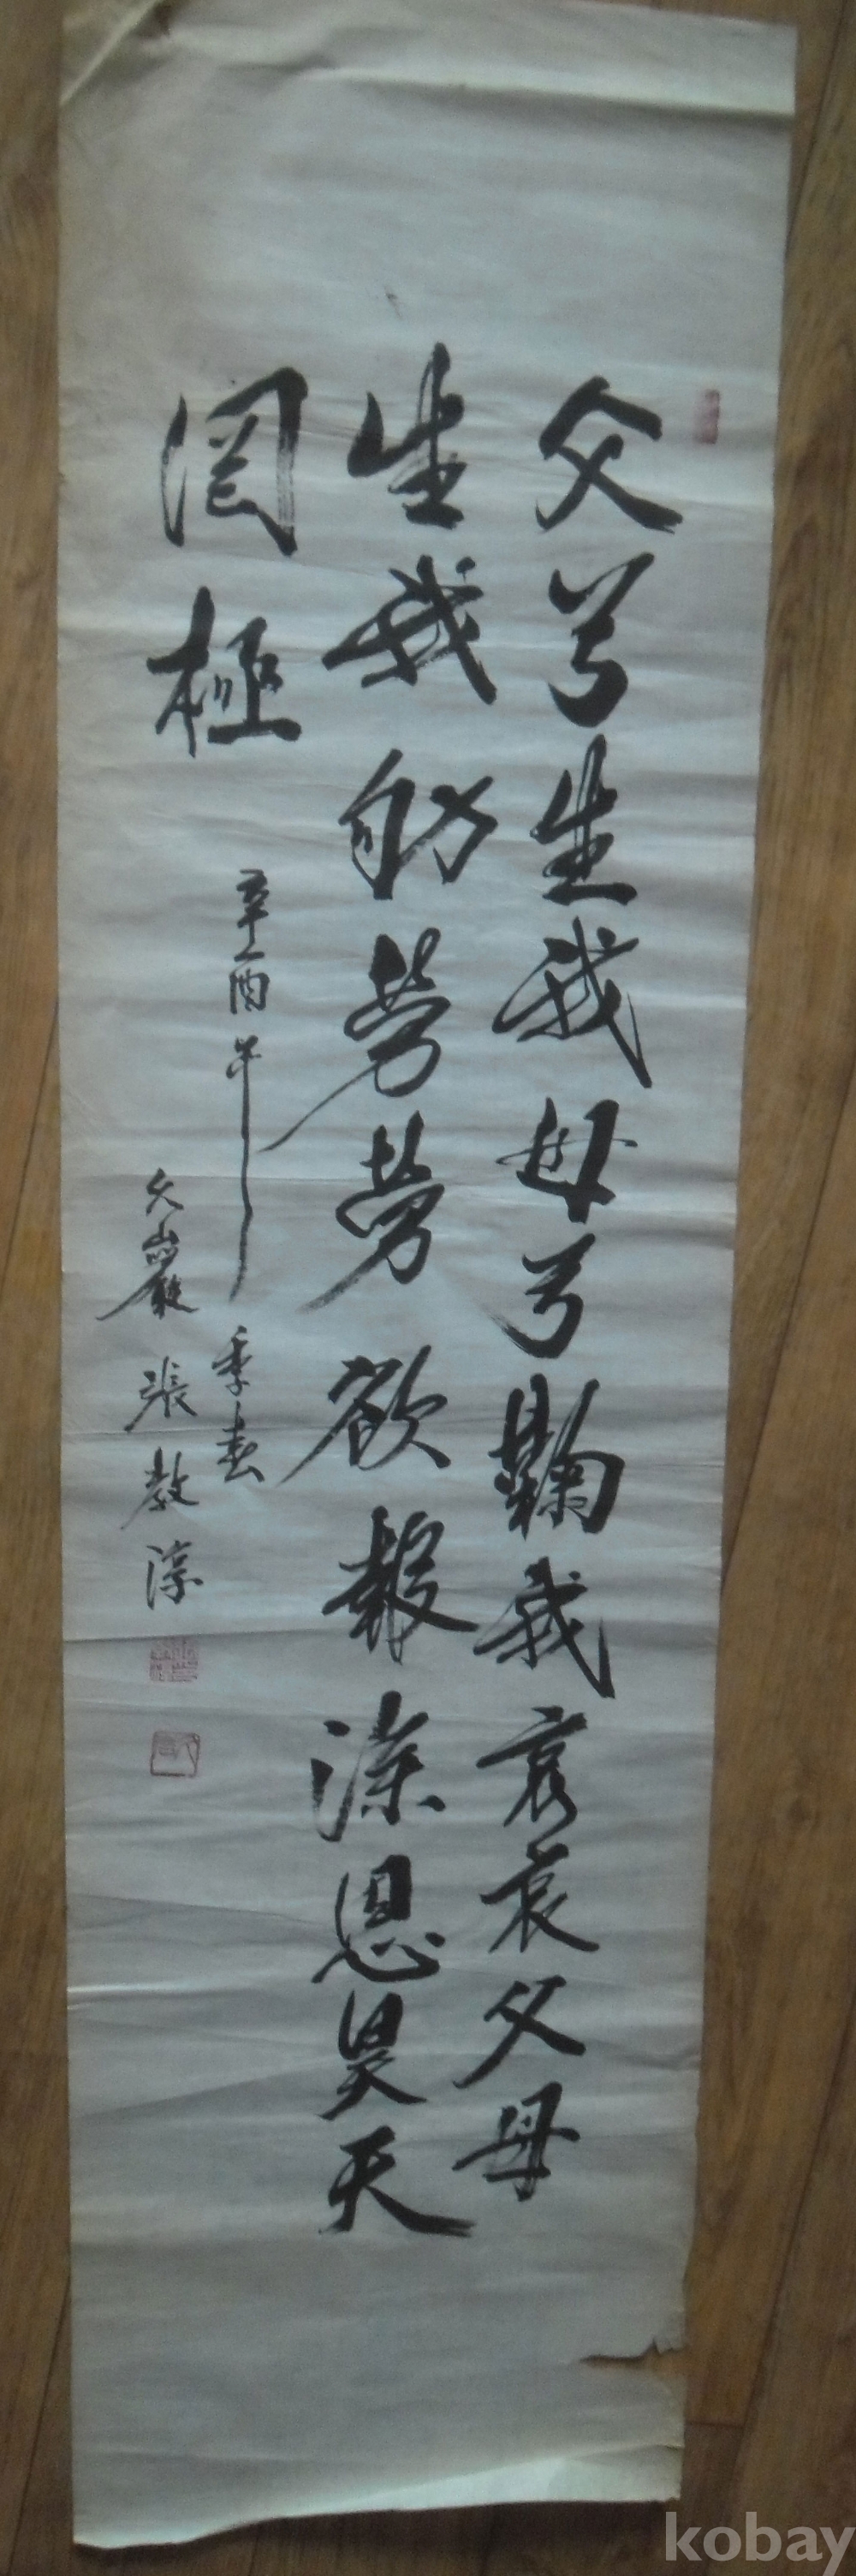 父兮生我母兮鞠我哀哀父母
生我劬勞勞欲報深恩昊天
罔極
辛酉年季春
久巖張教淳
kobay